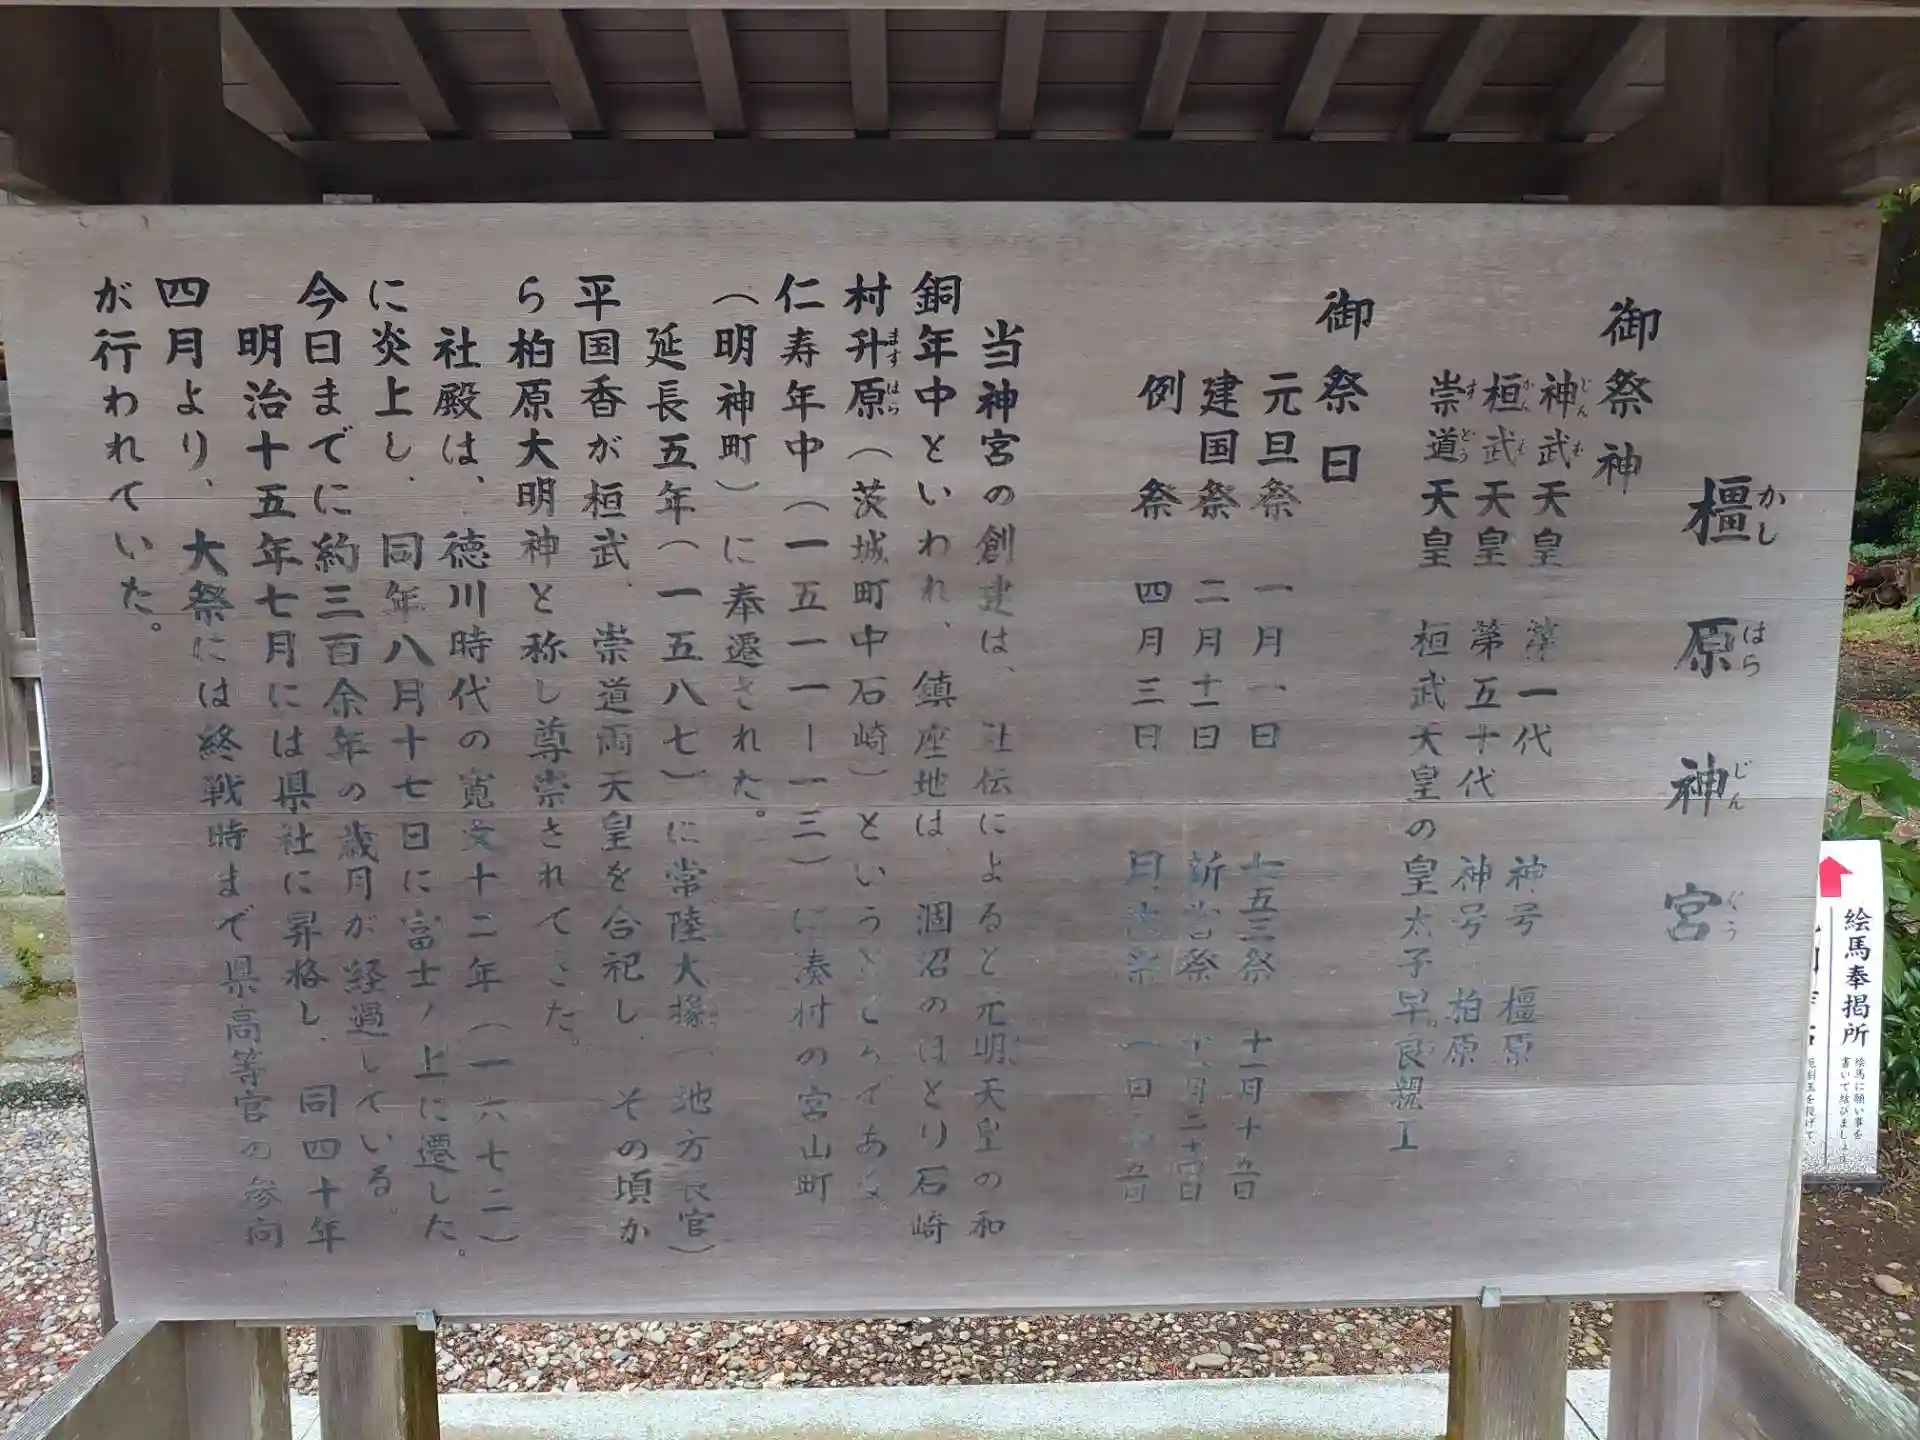 橿原神宮
かし はら じん ぐう
御祭神
神武天皇 第一代 神号 橿原
じん む
桓武天皇 第五十代 神号 柏原
かん む
崇道天皇 桓武天皇の皇太子早良親王
す どう
御祭日
元旦祭 一月一日 七五三祭 十一月十五日
建国祭 二月十一日 新嘗祭 十一月二十四日
例祭 四月三日 月次祭 一日 十五日
当神宮の創建は、社伝によると元明天皇の和
銅年中といわれ、鎮座地は、涸沼のほとり石崎
村升原（茨城町中石崎）というところである
ます はら
仁寿年中（一五一一ー一三）に湊村の宮山町
（明神町）に奉遷された。
延長五年（一五八七）に常陸大掾（地方長官）
平国香が桓武、崇道両天皇を合祀し、その頃か
ら柏原大明神と称し尊崇されてきた。
社殿は、徳川時代の寛文十二年（一六七二）
に炎上し、同年八月十七日に富士ノ上に遷した。
今日までに約三百余年の歳月が経過している。
明治十五年七月には県社に昇格し、同四十年
四月より、大祭には終戦時まで県高等官の参向
が行われていた。
絵馬奉掲所
絵馬に願い事を
書いて結びましょう